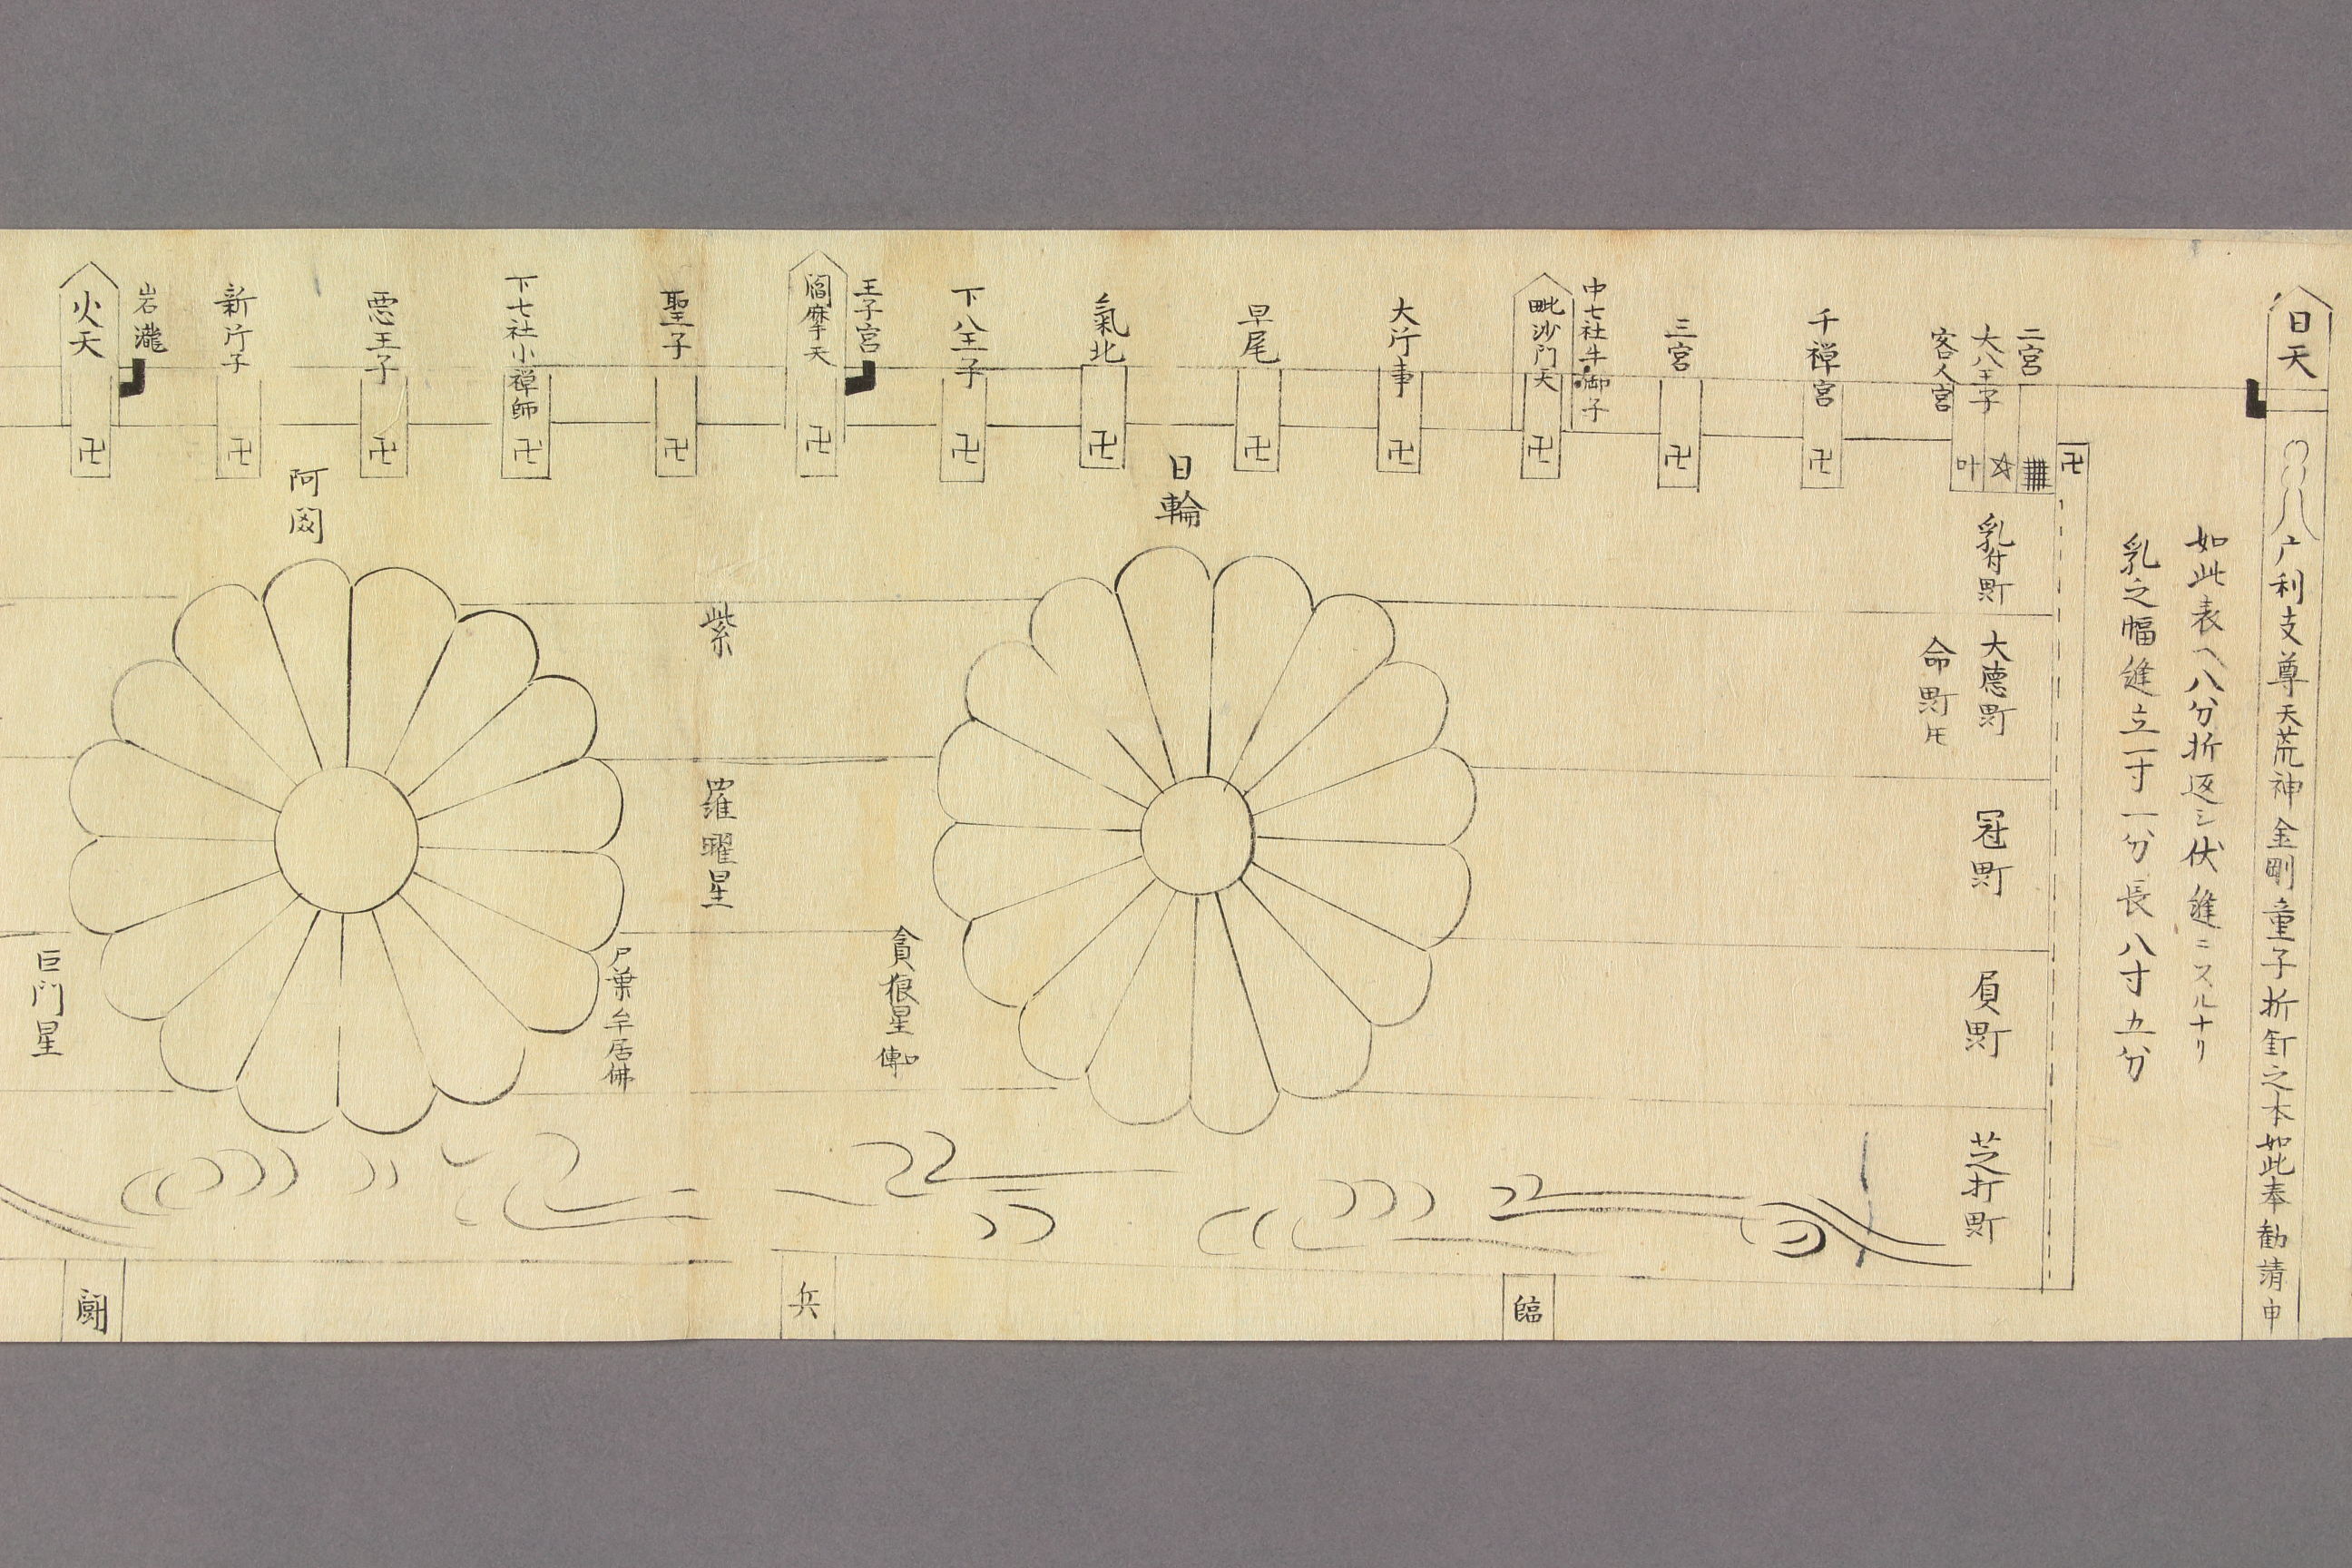 日天
广利支尊天荒神金剛童子折釘之本如此奉勧請申
如此表ヘ八分折返シ伏縫ニスルナリ
乳之幅縫立一寸一分長八寸五分
二宮
大八王子
客人宮
千禅宮
三宮
中七社牛御子
毗沙门天
大行事
早尾
氣北
下八王子
王子宮
閻摩天
聖子
下七社小禅師
悪王子
新行子
岩瀧
火天
卍
叶
卍
卍
卍
卍
卍
卍
卍
卍
卍
卍
卍
卍
卍
乳付町
大德町
命町
冠町
員町
芝打町
日輪
貪狼星
紫
羅曜星
阿閦
居佛
巨门星
臨
兵
闘